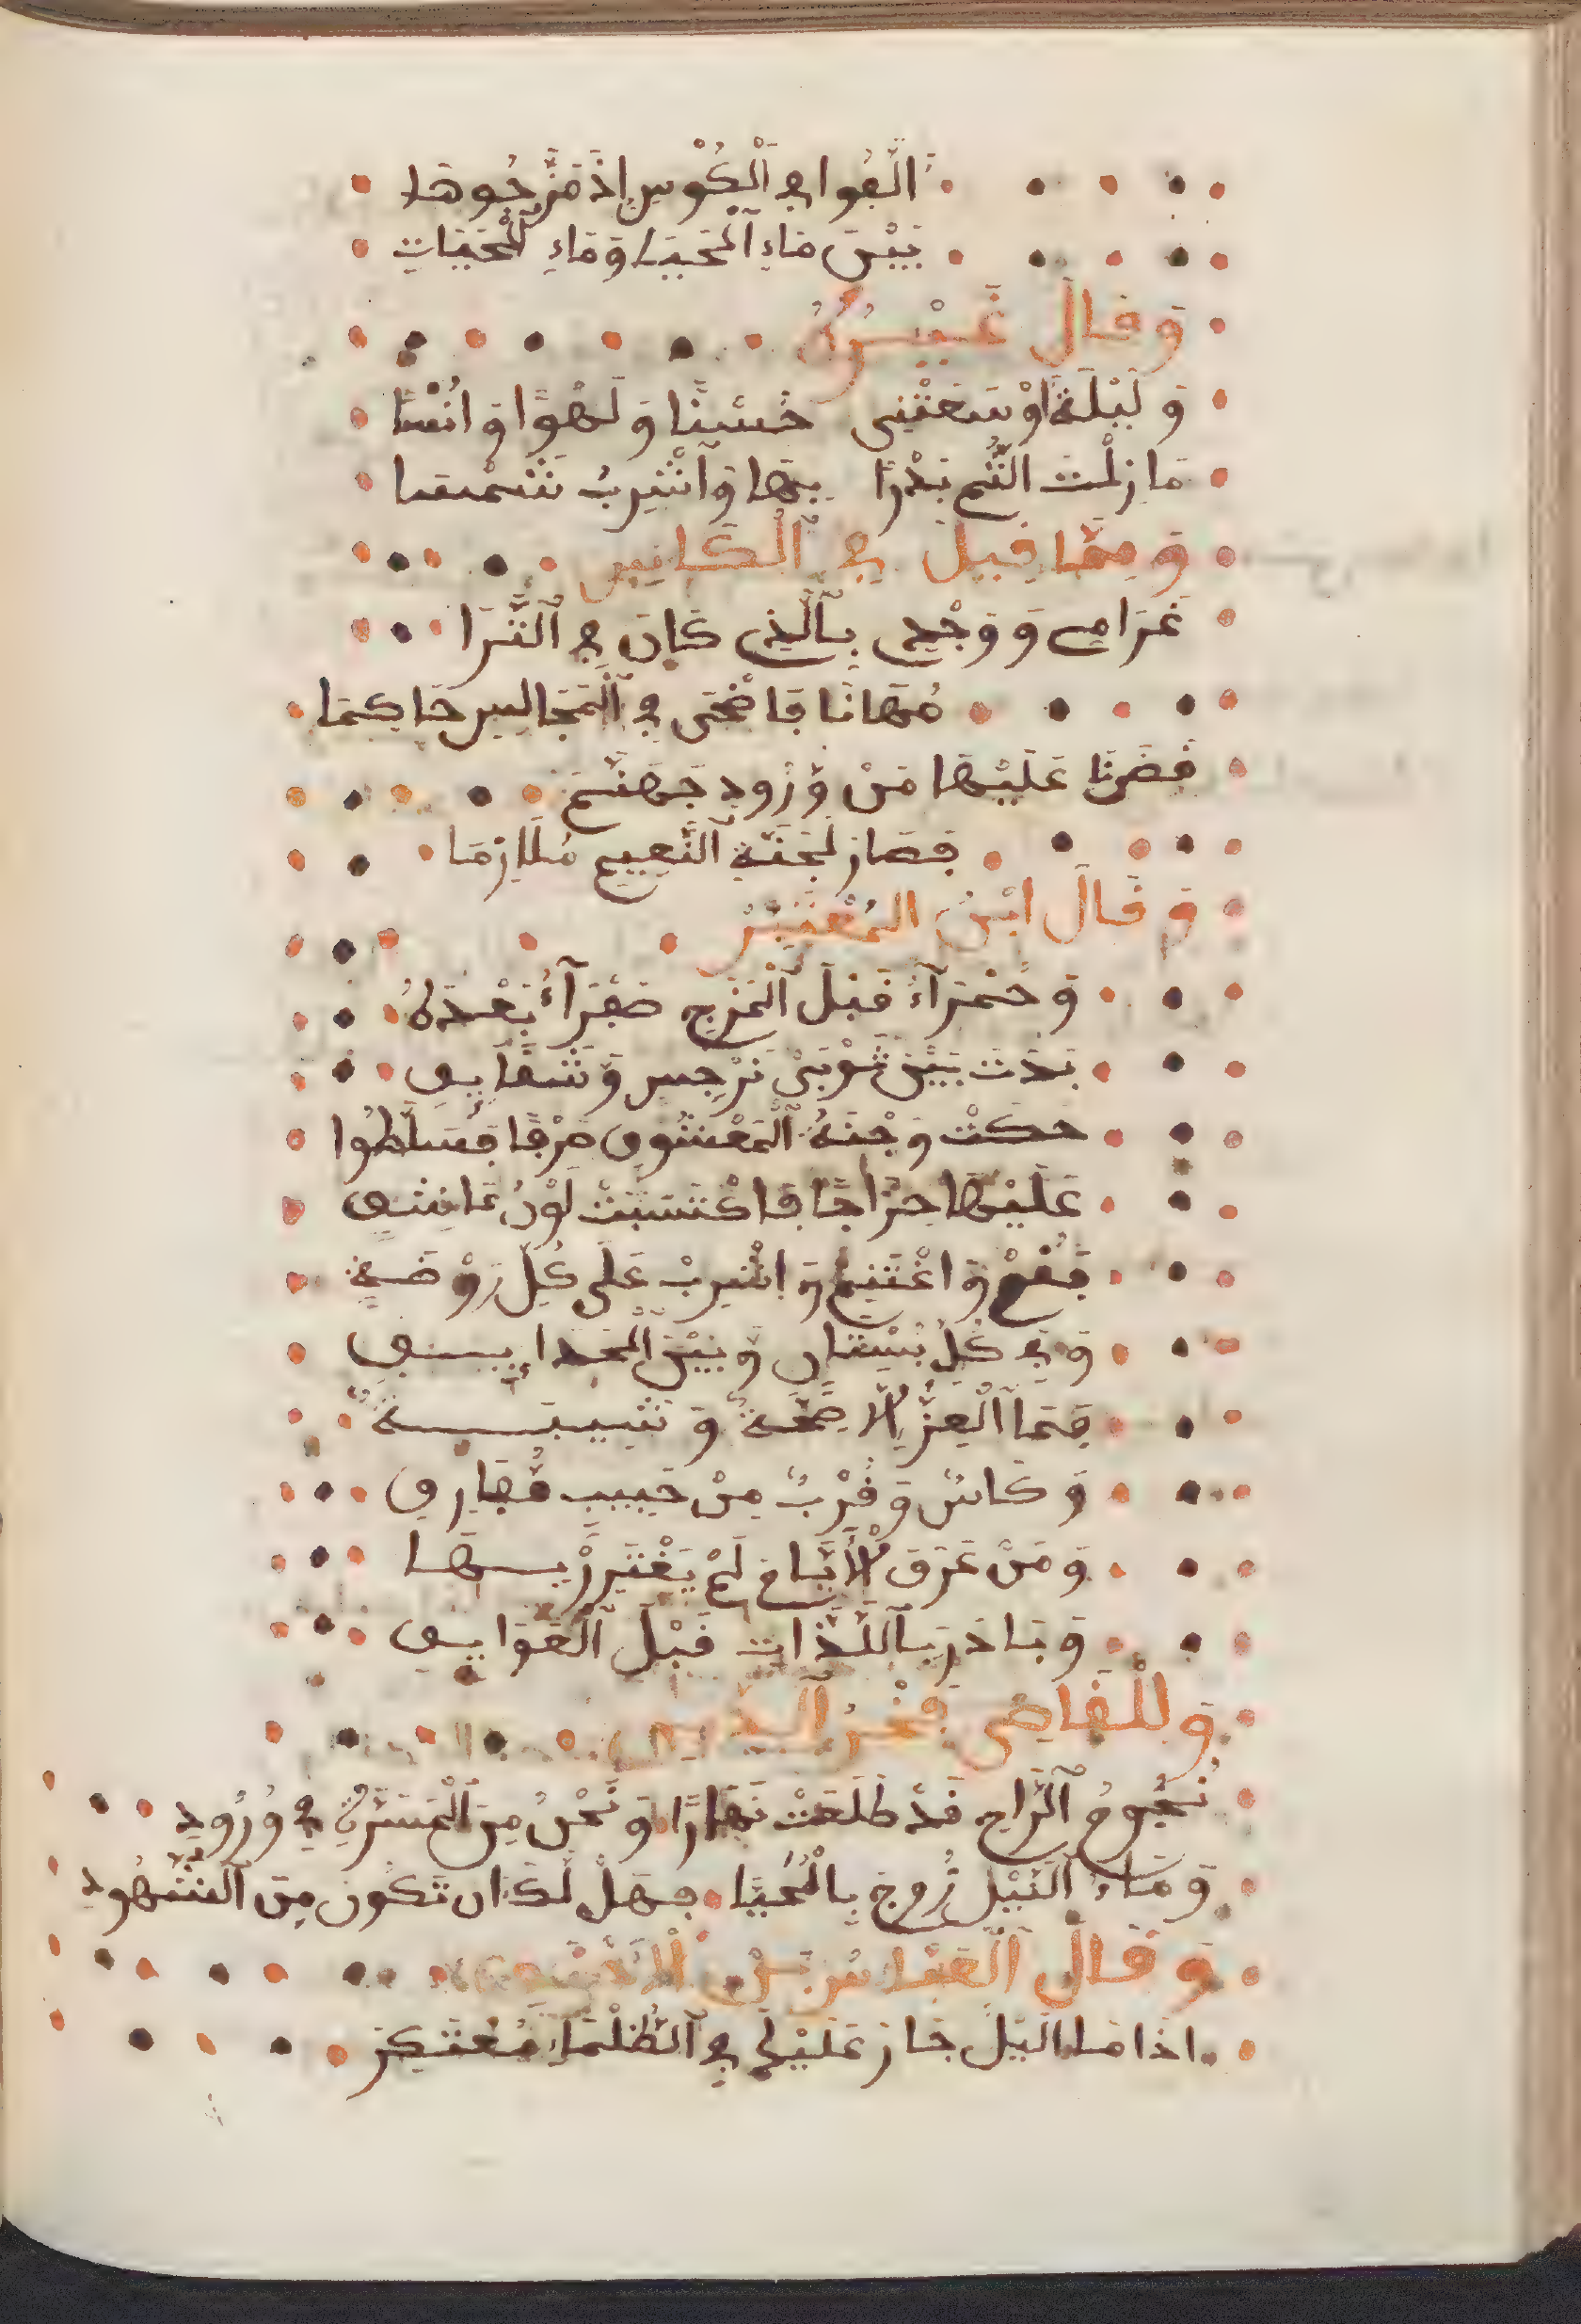 اَلَّفُوا فِي اَلْكُؤْسِ إِذْ مَزَّجُوهَا
بَيْنَ مَاءِ اَلْمُحَيَّا وَمَاءِ اَلْحَيَاتِ
وَقَالَ غَيْرُهُ
وَلَيْلَةً اوْسَعَتْنِي حُسْنًا وَلَهْوًا وَانُسًا
مَا زِلْتُ الْثُم بَدْرًا بِهَا وَاَشْرِبُ شَمْسًا
وَمِمَّا قِيلَ فِي اَلْكَاسِ
غَرَامِي وَوَجْدِي بِالَّذِي كَانَ فِي اَلثَّرَا
مُهَانًا فَاضْحَى فِي اَلْمَجَالِسِ حَاكِمَا
قَضَى عَلَيْهَا مَنْ وُرُودِ جَهَنَّمَ
فَصَارَ لِجَنَّةِ اَلنَّعِيمِ مُلَازِمَا
وَقَالَ ابْنُ الْمُعْتَزِّ
وَحَمْرَآءُ قَبْلَ اَلْمَزْجِ صَفْرَآءُ بَعْدَهُ
بَدَتْ بَيْنَ ثَوْبَيْ نَرْجِسٍ وَشَقَايِقِ
حَكَتْ وَجْنَةُ اَلْمَعْشُوقِ صِرْفًا فَسَلَّطُوا
عَلَيْهَا مِزَاجًا فَاكْتَسَبَتْ لَوْنُ عَاشِقِ
فَقُمْ وَاغْتَنِمْ وَاشْرِبْ عَلَى كُلِّ رَوْضَةٍ
وَفِي كُلِّ بُسْتَانٍ وَبَيْنَ اَلْحَدَايِقِ
فَمَا اَلْعِزُّ إِلَّا صِحَّةٌ وَشَبِيبَةٌ
وَكَاسٌ وَقُرْبٌ مِنْ حَبِيبٍ مُفَارِقِ
وَمَنْ عَرَفَ اَلْأَيَّامَ لَمْ يَغْتَرِرْ بِهَا
وَبَادَرَ بِاللَّذَّاتِ قَبْلَ اَلْعَوَايِقِ
وَلِلْقَاضِي فَخْرُ اَلدِّينِ
نُجُومُ اَلرَّاحِ قَدْ طَلَعَتْ نَهَارًا وَنَحْنُ مِنَ اَلْمَسَرَّةِ فِي وُرُودِ
وَمَاءُ اَلنِّيْلِ زُوِّجَ بِالْحُمَيَّا فَهَلْ لَكَ ان تَكُونَ مِنَ اَلشُّهُودِ
وَقَالَ اَلْعَبَّاسُ بْنُ اَلْأَحْنَفِ
اذَا مَا الَيْلُ جَارَ عَلَيْكَ فِي اَلظُّلْمَاءِ مُعْتَكِرْ